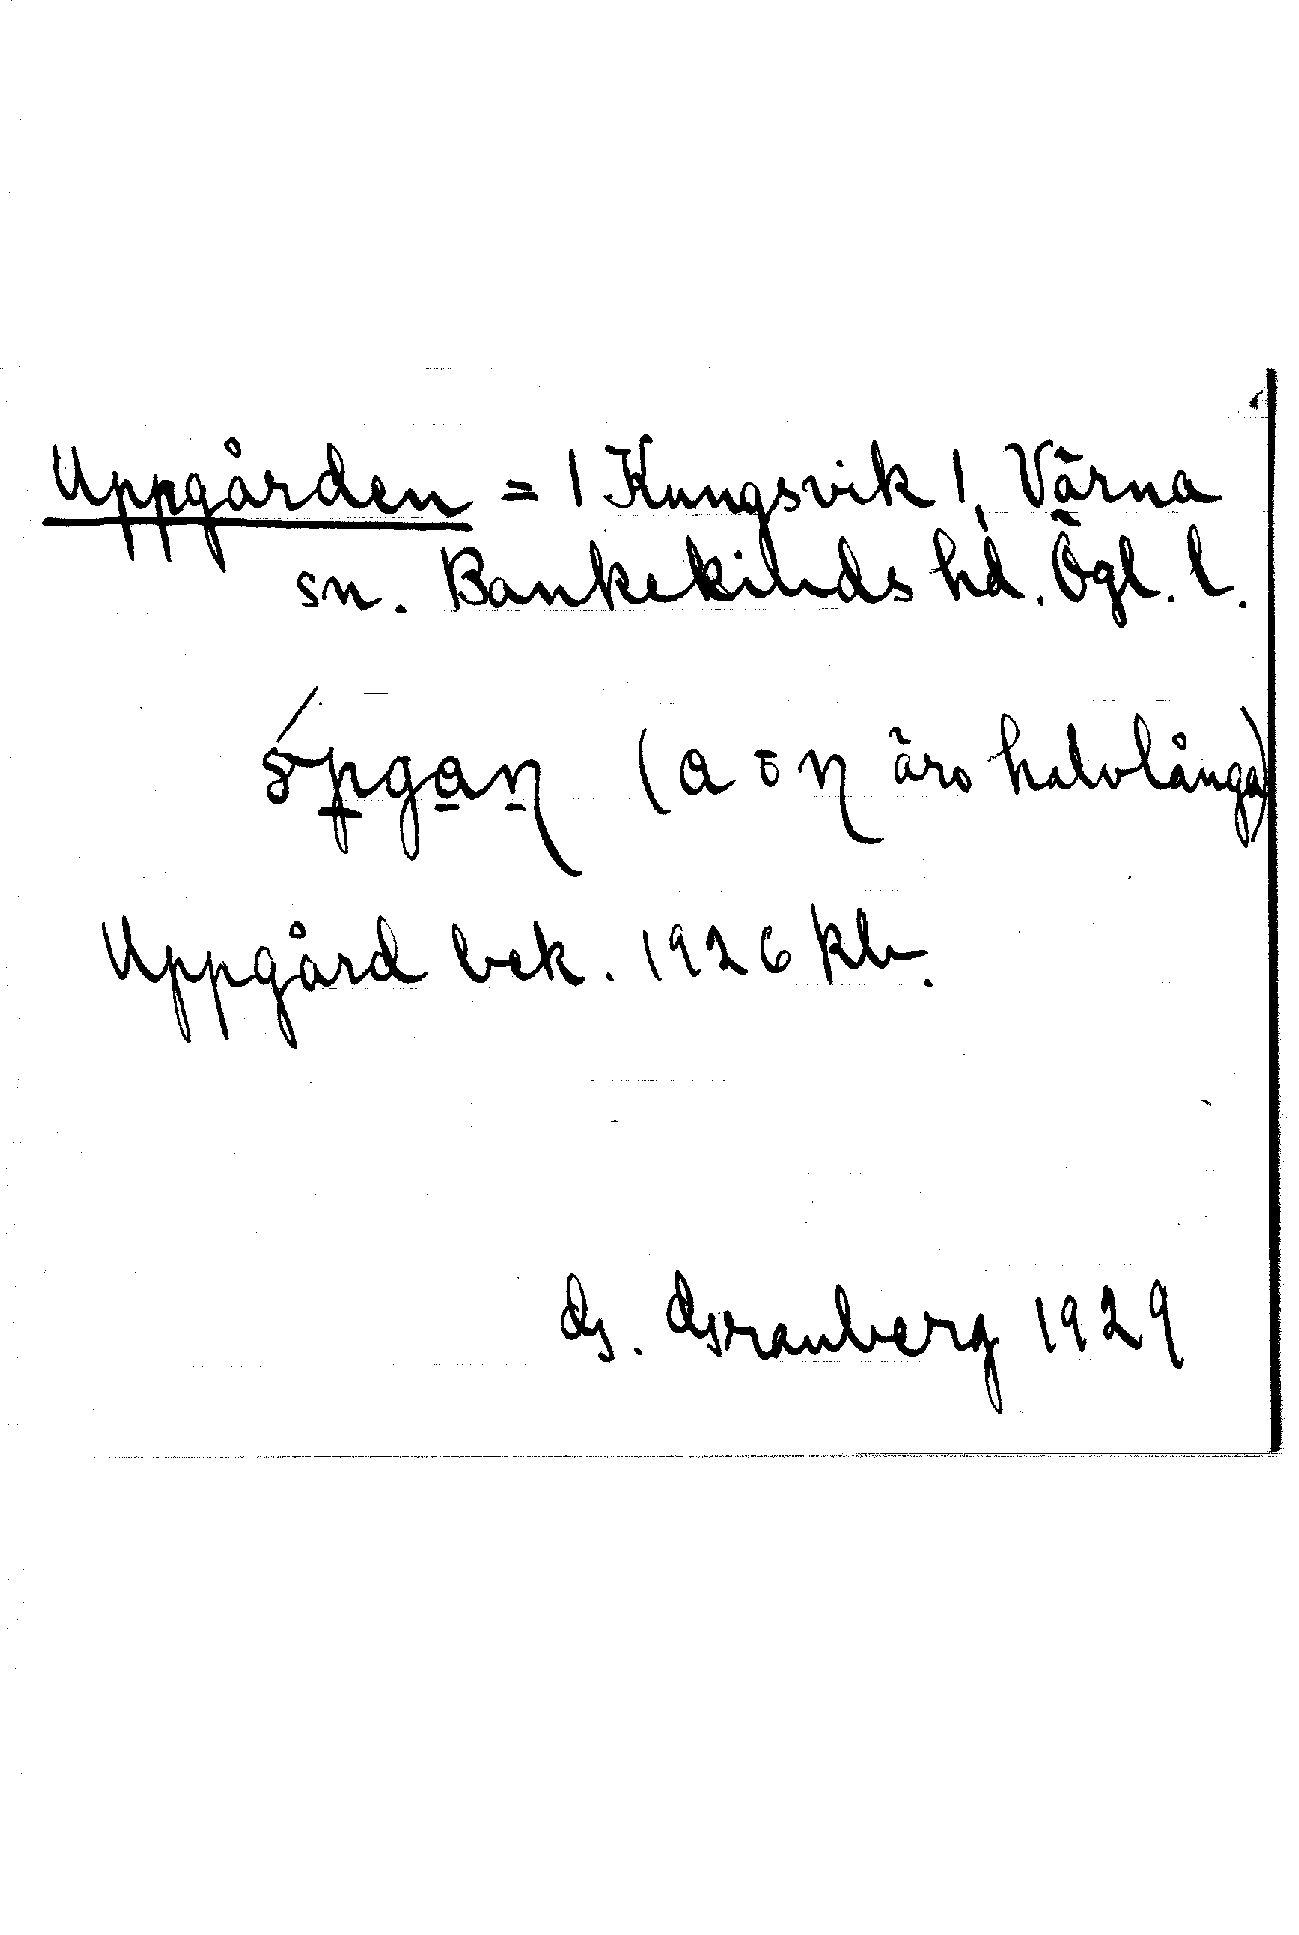 Uppgården = | Kungsvik |, Värna
sn. Bankekinds hd. Ögl. l.
(a o ŋ äro halvlånga)
Uppgård bek. 1926 kb.
G. Granberg 1929